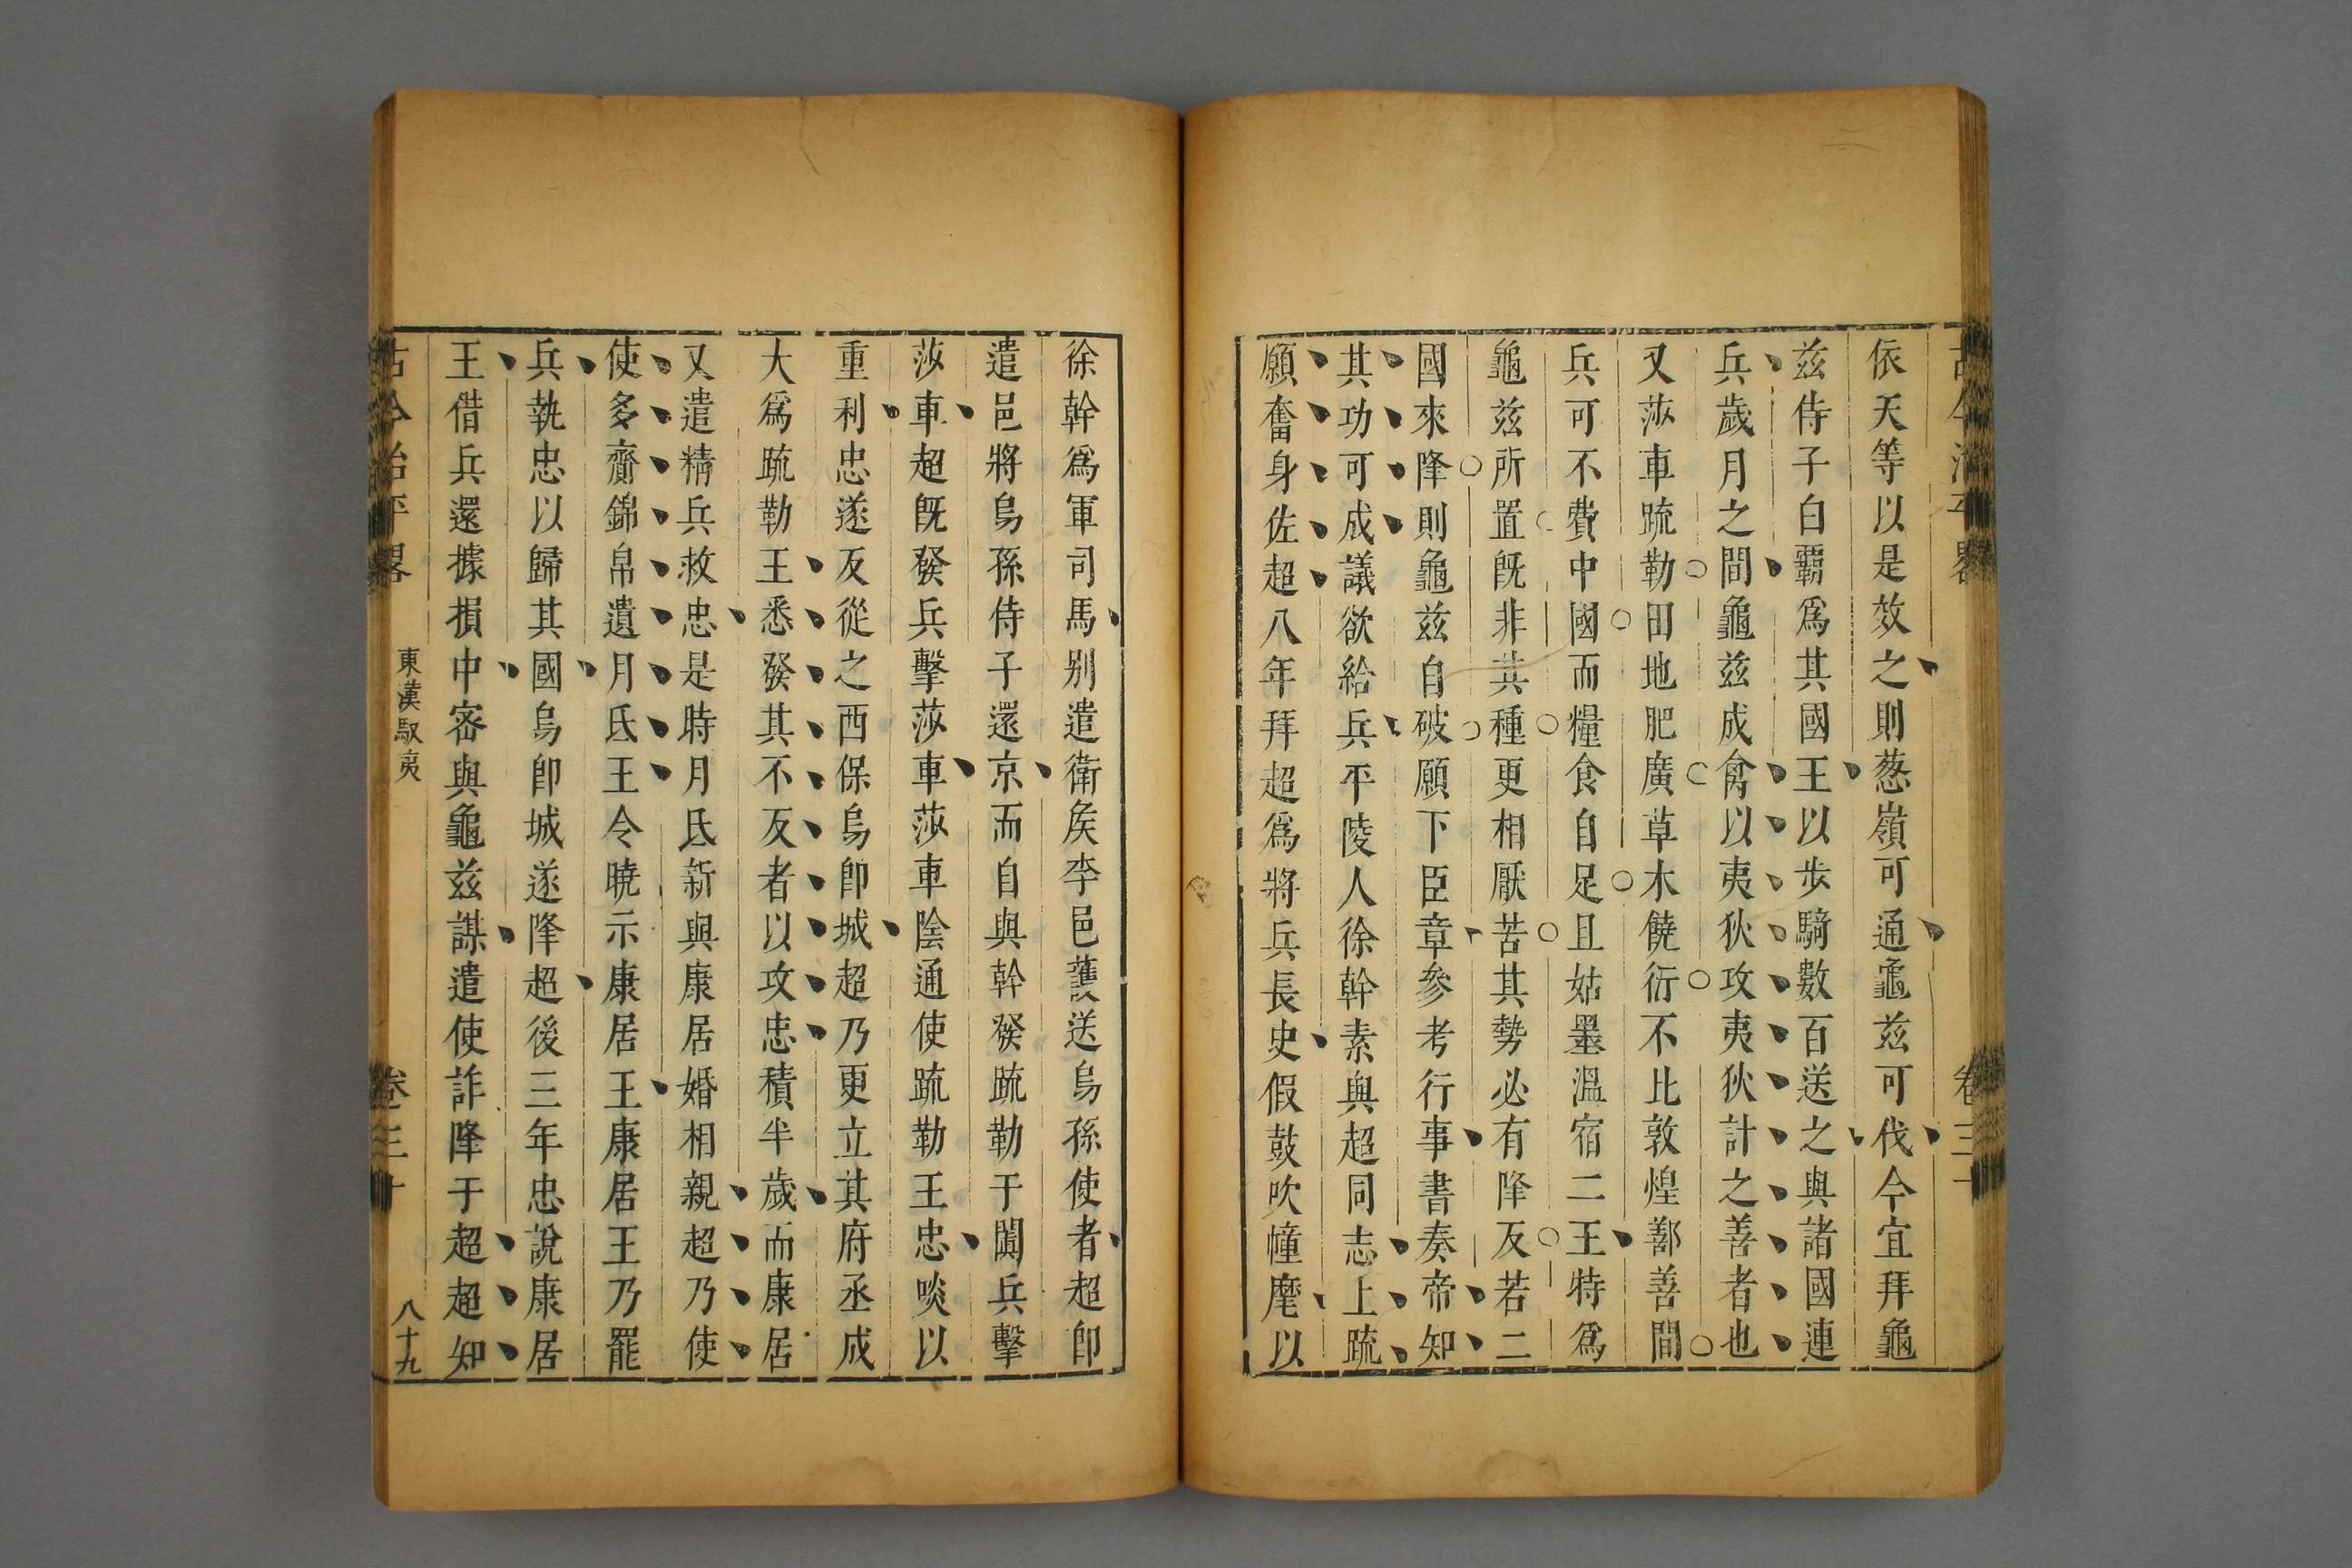 依天等以是效之則葱嶺可通龜兹可伐今宜拜龜
兹侍子白霸爲其國王以步騎數百送之與諸國連
兵歲月之間龜兹成禽以夷狄攻夷狄計之善者也
又莎車疏勒田地肥廣草木饒衍不比敦煌鄯善間
兵可不費中國而糧食自足且姑墨溫宿二王特爲
龜兹所置既非其種更相厭苦其勢必有降反若二
國來降則龜兹自破願下臣章參考行事書奏帝知
其功可成議欲給兵平陵人徐幹素與超同志上疏
願奮身佐超八年拜超爲將兵長史假鼓吹幢麾以
徐幹爲軍司馬别遣衛矦李邑護送烏孫使者超卽
遣邑將烏孫侍子還京而自與幹發疏勒于闐兵擊
莎車超既發兵擊莎車莎車陰通使疏勒王忠啖以
重利忠遂反從之西保烏卽城超乃更立其府丞成
大爲疏勒王悉發其不反者以攻忠積半歲而康居
又遣精兵救忠是時月氏新與康居婚相親超乃使
使多齎錦帛遺月氏王令曉示康居王康居王乃罷
兵執忠以歸其國烏卽城遂降超後三年忠說康居
王借兵還據損中密與龜兹謀遣使詐降于超超知
古今治平畧 東漢馭夷 卷三十 八十九